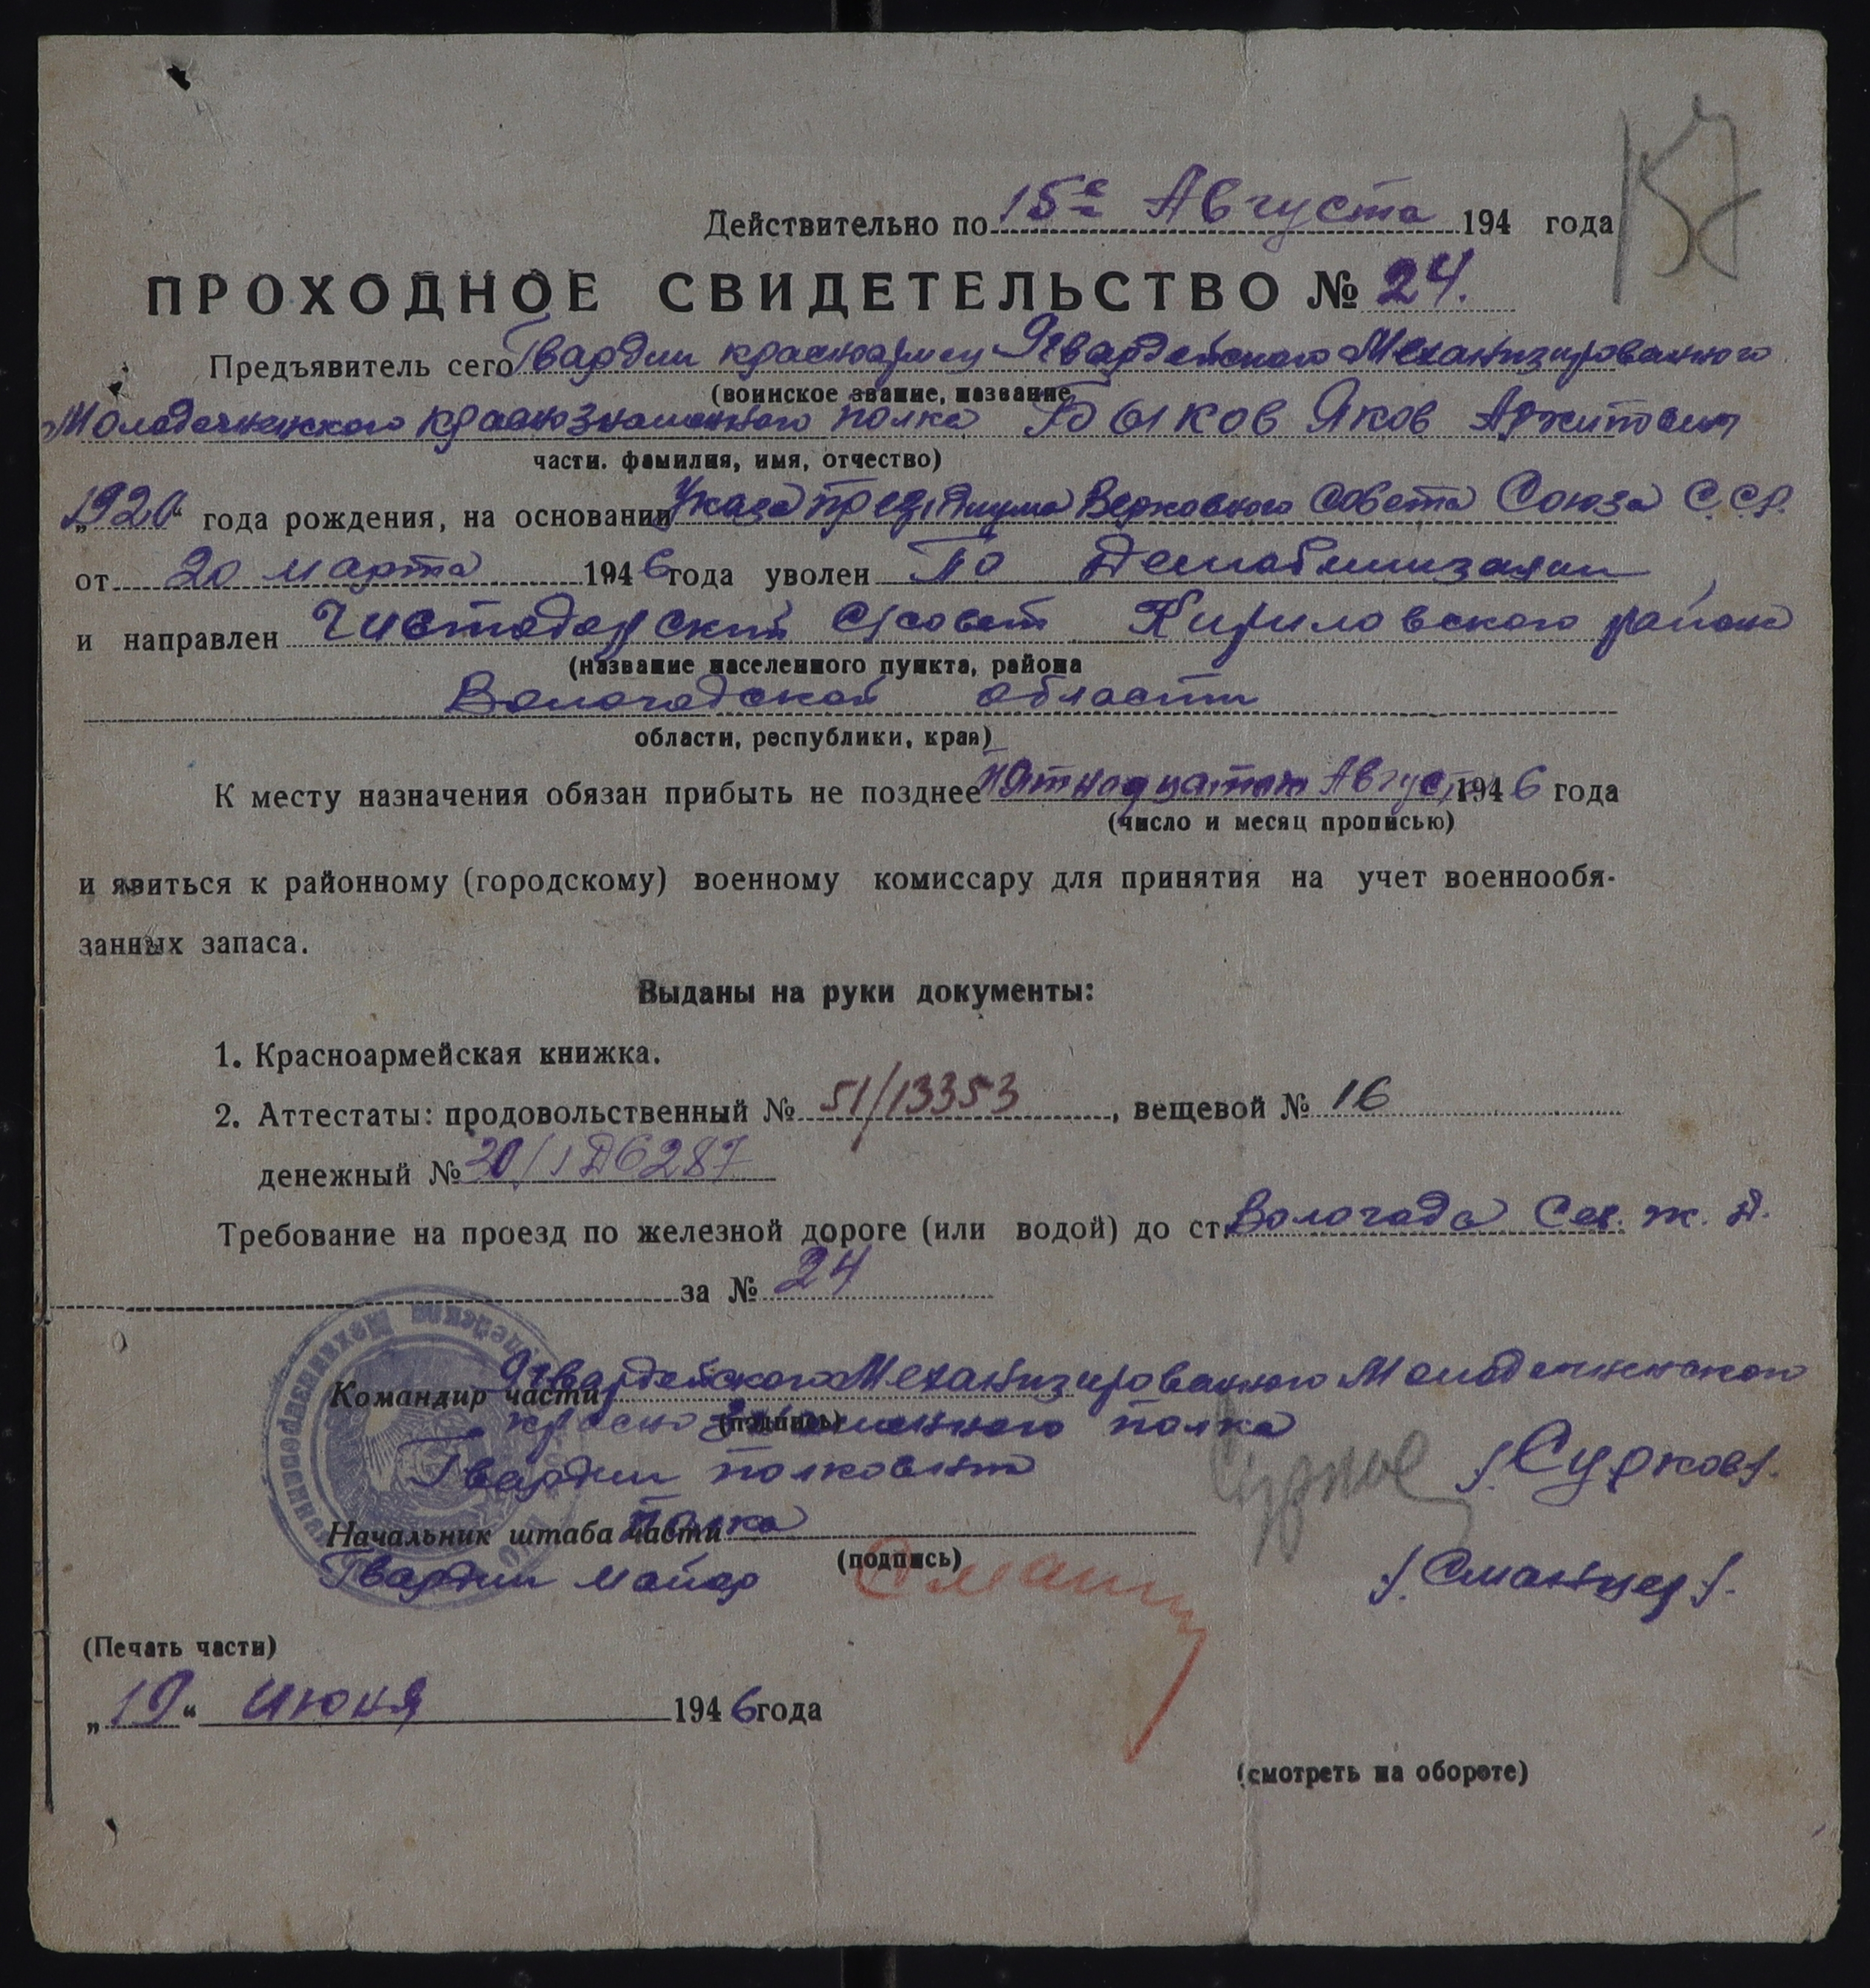 157
Действительно по 15е Августа 194 года
ПРОХОДНОЕ СВИДЕТЕЛЬСТВО № 24.
Предъявитель сего Гвардии красноармеец 9 гвардейского Механизированного
(воинское звание, название
Молодечненского краснознаменного полка Быков Яков
части. фамилия, имя, отчество)
„1920“ года рождения, на основании Указа президиума Верховного Совета Союза С.С.Р.
от 20 марта 1946 года уволен По Демобилизации
и направлен Чистодорский с/совет Кириловского района
(название населенного пункта, района
Вологодской области
области, республики, края)
К месту назначения обязан прибыть не позднее Пятнадцатого Августа 1946 года
(число и месяц прописью)
и явиться к районному (городскому) военному комиссару для принятия на учет военнообя-
занных запаса.
Выданы на руки документы:
1. Красноармейская книжка.
2. Аттестаты: продовольственный № 51/13353, вещевой № 16
денежный № 20/1Д6287
Требование на проезд по железной дороге (или водой) до ст. Вологода Сев. ж. д.
за № 24
Командир части 9 гвардейского Механизированного Молодечненского
(подпись)
краснознаменного полка
Гвардии полковник /Сурков/.
Начальник штаба части полка
(подпись)
Гвардии майор /Сманцер/.
(Печать части)
„19“ июня 1946 года
(смотреть на обороте)